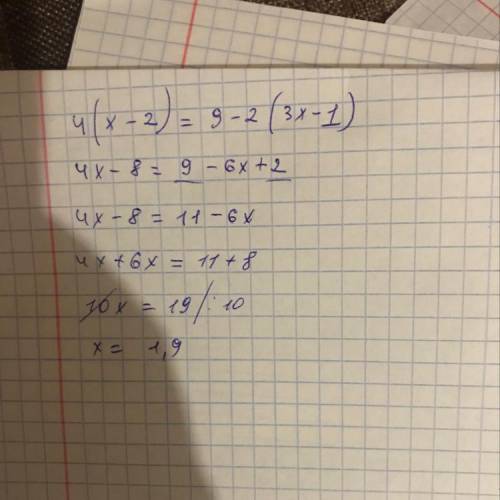 4(x-2) = 9-2(3x-1)
4x-8 = 9-6x+2
4x-8 = 11-6x
4x+6x = 11+8
10x = 19/:10
x = 1,9